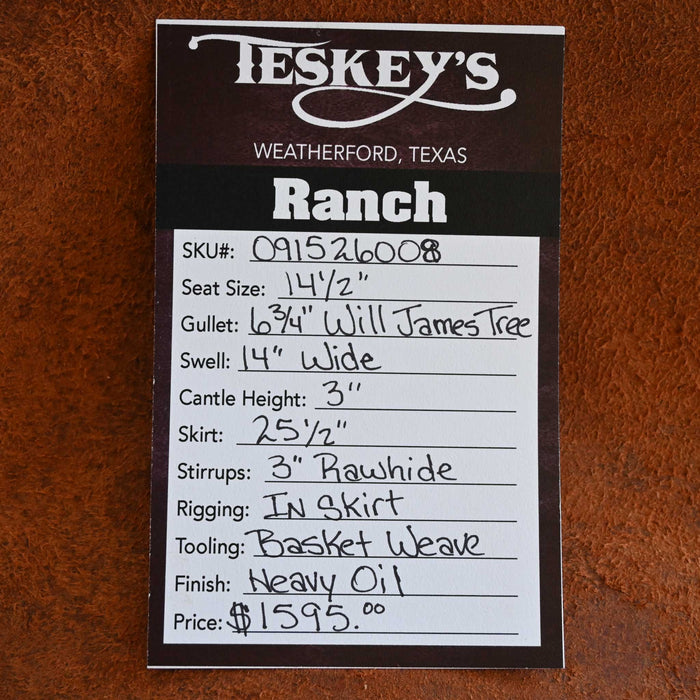 TESKEY'S
WEATHERFORD, TEXAS
Ranch
SKU#: 091526008
Seat Size: 14 1/2"
Gullet: 6 3/4" Will James Tree
Swell: 14" Wide
Cantle Height: 3"
Skirt: 25 1/2"
Stirrups: 3" Rawhide
Rigging: IN Skirt
Tooling: Basket Weave
Finish: Heavy Oil
Price: $1595.00